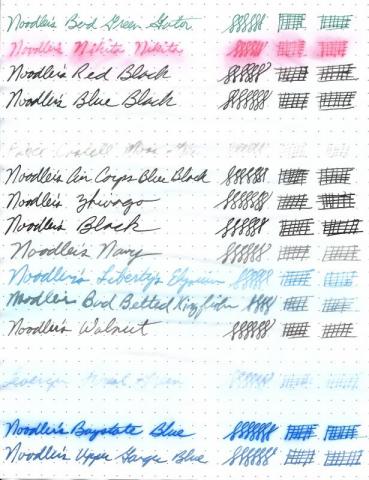 Noodler's Bad Green Gator
Noodler's Nikita Nikita
Noodler's Red Black
Noodler's Blue Black
Noodler's Air Corps Blue Black
Noodler's Zhivago
Noodler's Black
Noodler's Navy
Noodler's Liberty's Elysium
Noodler's Bad Belted Kingfisher
Noodler's Walnut
Noodler's Baystate Blue
Noodler's Upper Ganges Blue